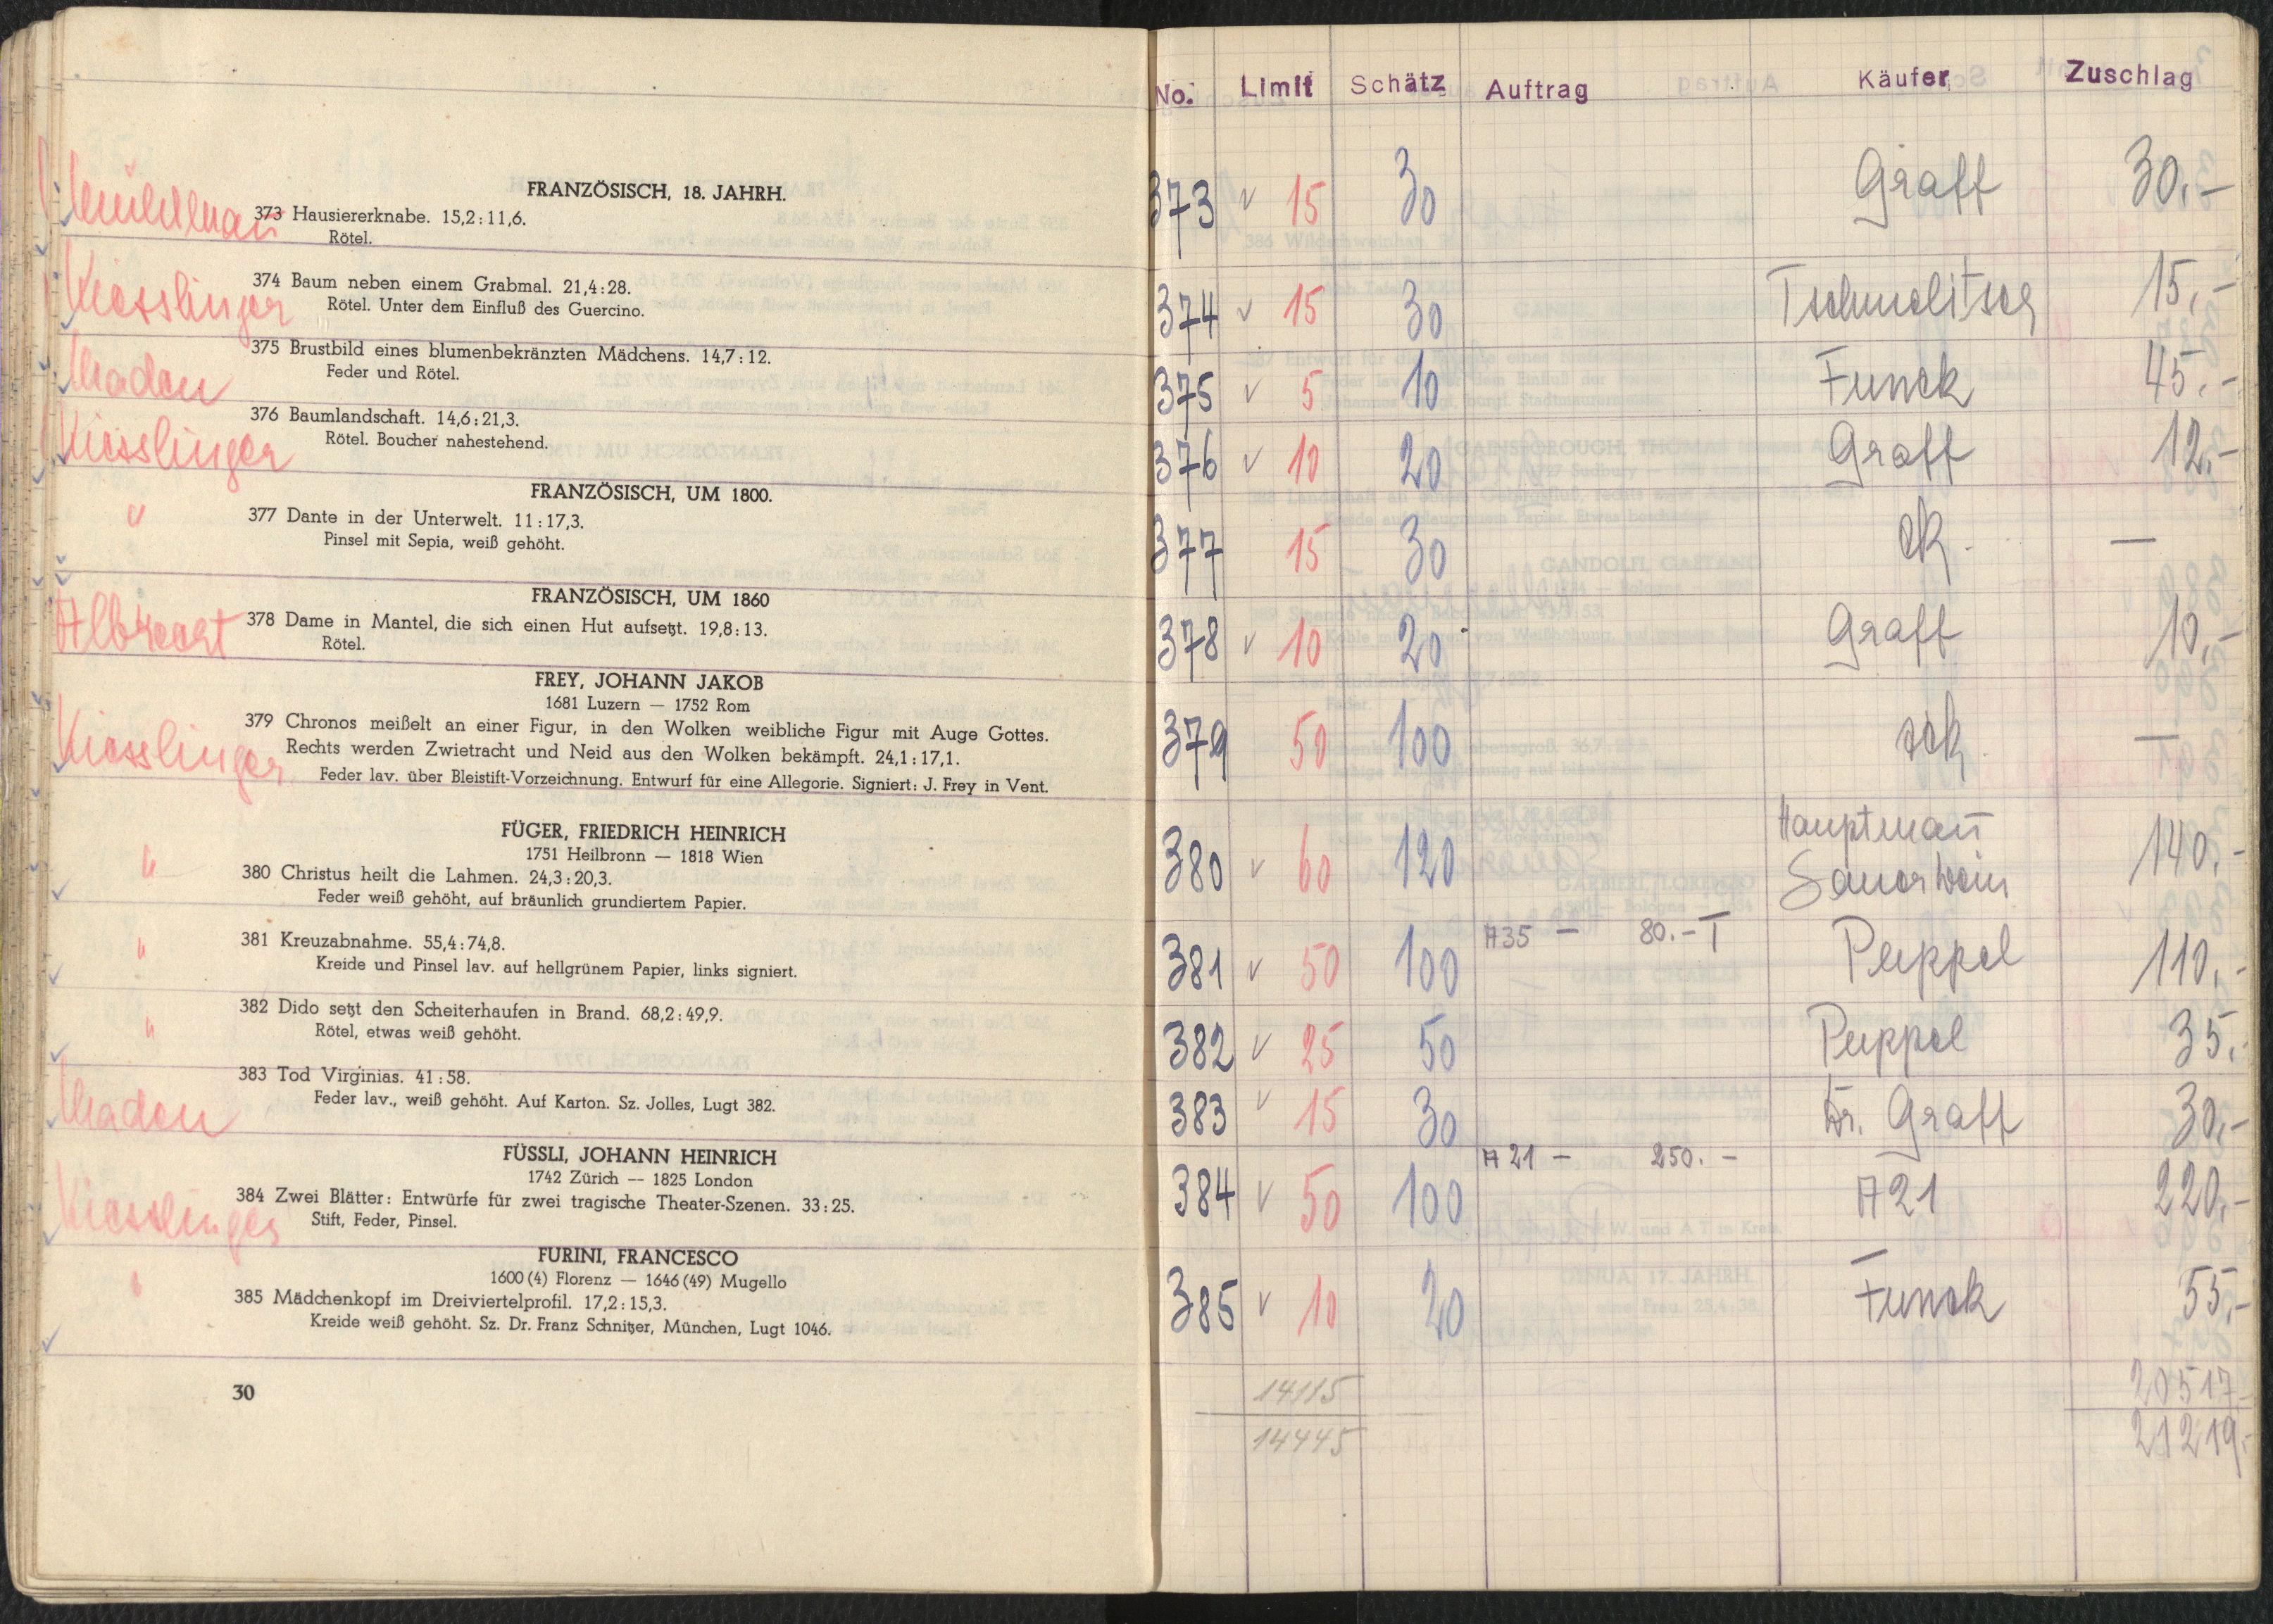 FRANZÖSISCH, 18. JAHRH.
373 Hausiererknabe. 15,2:11,6.
Rötel.
Kiesslinger
374 Baum neben einem Grabmal. 21,4:28.
Rötel. Unter dem Einfluß des Guercino.
375 Brustbild eines blumenbekränzten Mädchens. 14,7:12.
Feder und Rötel.
Kiesslinger
376 Baumlandschaft. 14,6:21,3.
Rötel. Boucher nahestehend.
FRANZÖSISCH, UM 1800.
"
377 Dante in der Unterwelt. 11:17,3.
Pinsel mit Sepia, weiß gehöht.
FRANZÖSISCH, UM 1860
Albrecht
378 Dame in Mantel, die sich einen Hut aufsetzt. 19,8:13.
Rötel.
FREY, JOHANN JAKOB
1681 Luzern — 1752 Rom
Kiesslinger
379 Chronos meißelt an einer Figur, in den Wolken weibliche Figur mit Auge Gottes.
Rechts werden Zwietracht und Neid aus den Wolken bekämpft. 24,1:17,1.
Feder lav. über Bleistift-Vorzeichnung. Entwurf für eine Allegorie. Signiert: J. Frey in Vent.
FÜGER, FRIEDRICH HEINRICH
1751 Heilbronn — 1818 Wien
"
380 Christus heilt die Lahmen. 24,3:20,3.
Feder weiß gehöht, auf bräunlich grundiertem Papier.
"
381 Kreuzabnahme. 55,4:74,8.
Kreide und Pinsel lav. auf hellgrünem Papier, links signiert.
"
382 Dido setzt den Scheiterhaufen in Brand. 68,2:49,9.
Rötel, etwas weiß gehöht.
383 Tod Virginias. 41:58.
Feder lav., weiß gehöht. Auf Karton. Sz. Jolles, Lugt 382.
FÜSSLI, JOHANN HEINRICH
1742 Zürich — 1825 London
Kiesslinger
384 Zwei Blätter: Entwürfe für zwei tragische Theater-Szenen. 33:25.
Stift, Feder, Pinsel.
FURINI, FRANCESCO
1600(4) Florenz — 1646(49) Mugello
"
385 Mädchenkopf im Dreiviertelprofil. 17,2:15,3.
Kreide weiß gehöht. Sz. Dr. Franz Schnitzer, München, Lugt 1046.
30
No. Limit Schätz Auftrag Käufer Zuschlag
373 v 15 30 Graff 30.-
374 v 15 30 15.-
375 v 5 10 Funck 45.-
376 v 10 20 Graff 12.-
377 15 30 —
378 v 10 20 Graff 10.-
379 50 100 —
380 v 60 120 Hauptmañ
Sauerwein 140.-
381 v 50 100 A35 — 80.- T Peippel 110.-
382 v 25 50 Peippel 35.-
383 v 15 30 Dr. Graff 30.-
384 v 50 100 A 21 — 250.- A 21 220.-
385 v 10 20 Funck 55.-
14115 20517.-
14445 21219.-